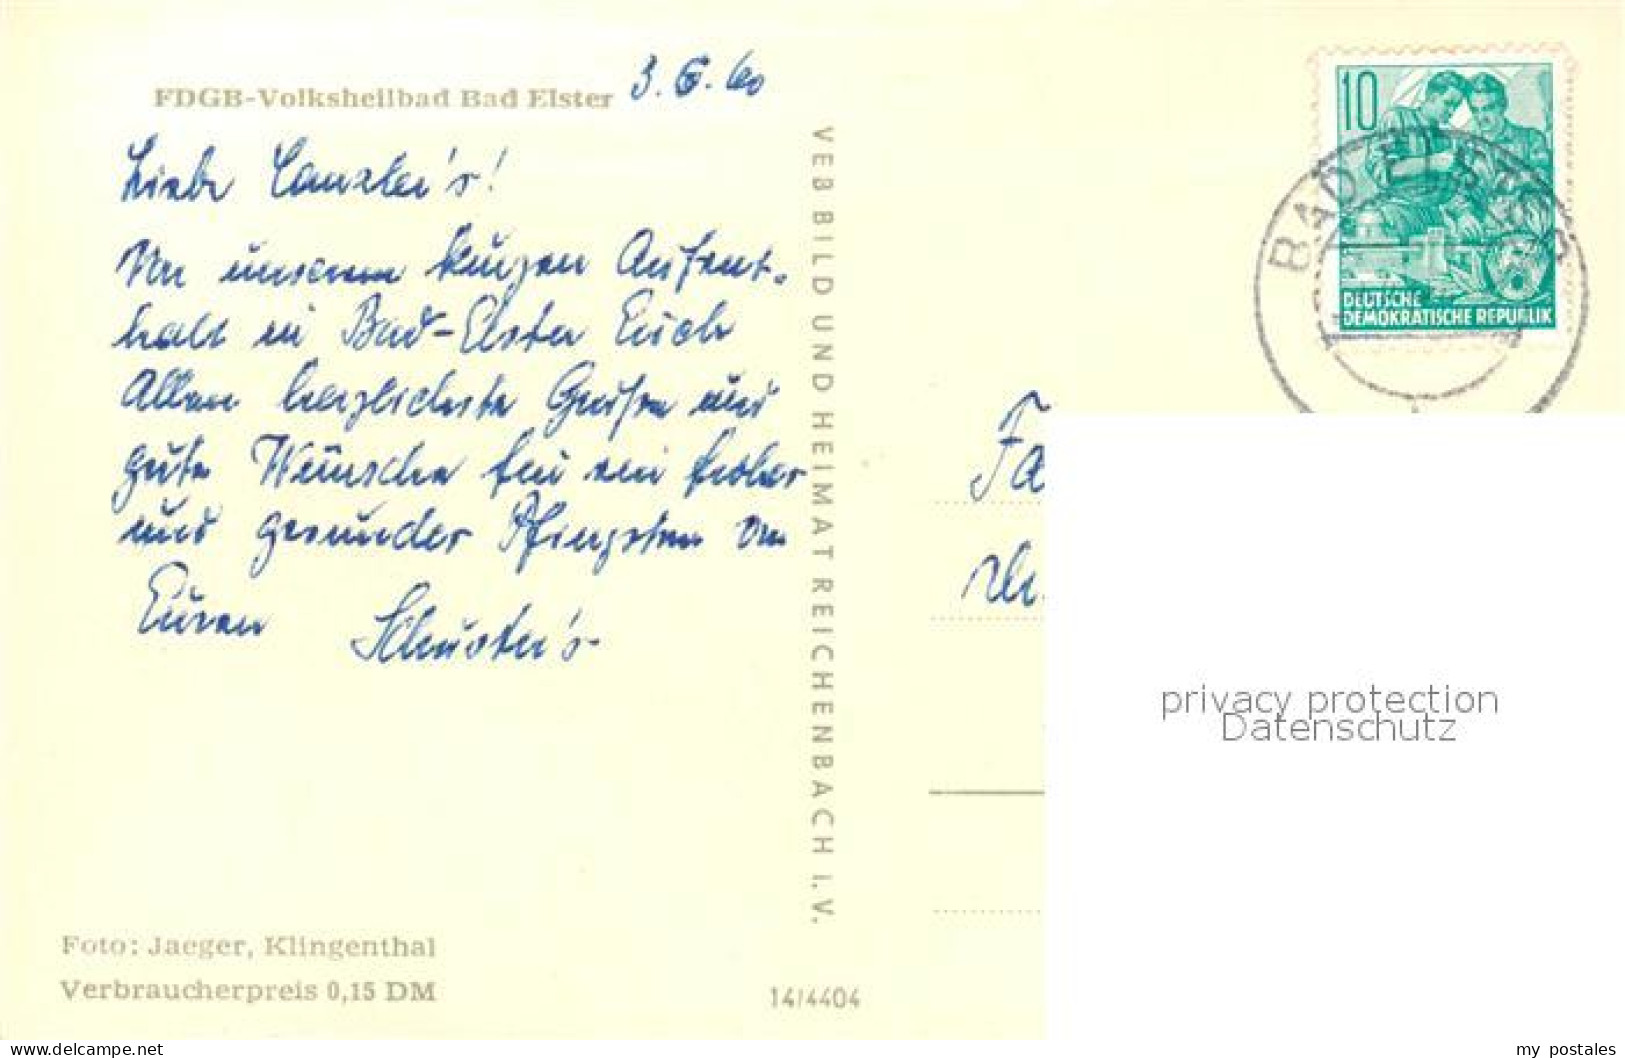 FDGB-Volksheilbad Bad Elster 3. 6. 60
Liebe Canzler's!
Von unserem kurzen Aufent-
halt in Bad-Elster Euch
Allen herzlichste Grüße und
gute Wünsche für ein froher
und gesunder Pfingsten von
Euren Schuster's
Foto: Jaeger, Klingenthal
Verbraucherpreis 0,15 DM
14/4404
VEB BILD UND HEIMAT REICHENBACH i. V.
10
DEUTSCHE
DEMOKRATISCHE REPUBLIK
BAD ELSTER
Fa
privacy protection
Datenschutz
delcampe.net
my_postales